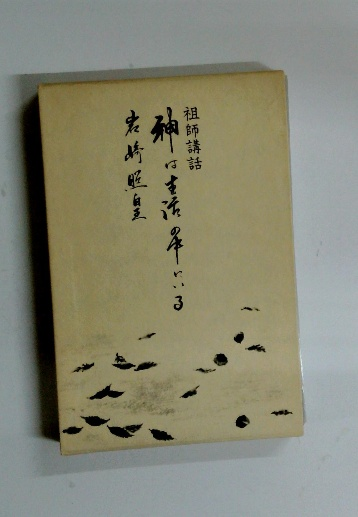 祖師講話
神は生活の中にいる
岩崎照皇